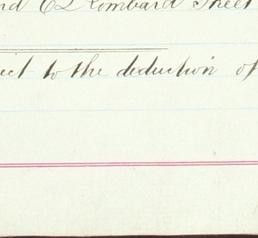 nd 62 Lombard Street
ect to the deduction of